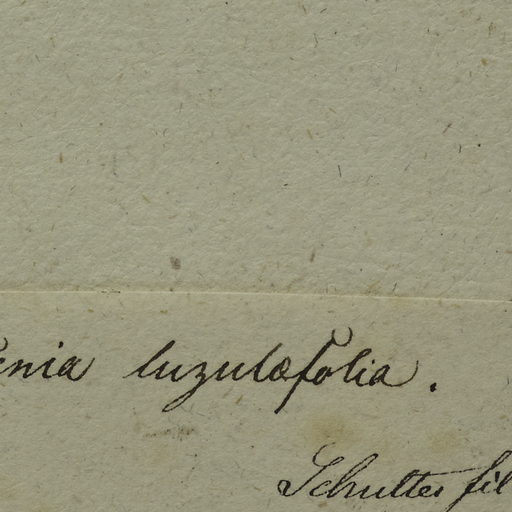 enia luzulæfolia.
Schultes fil